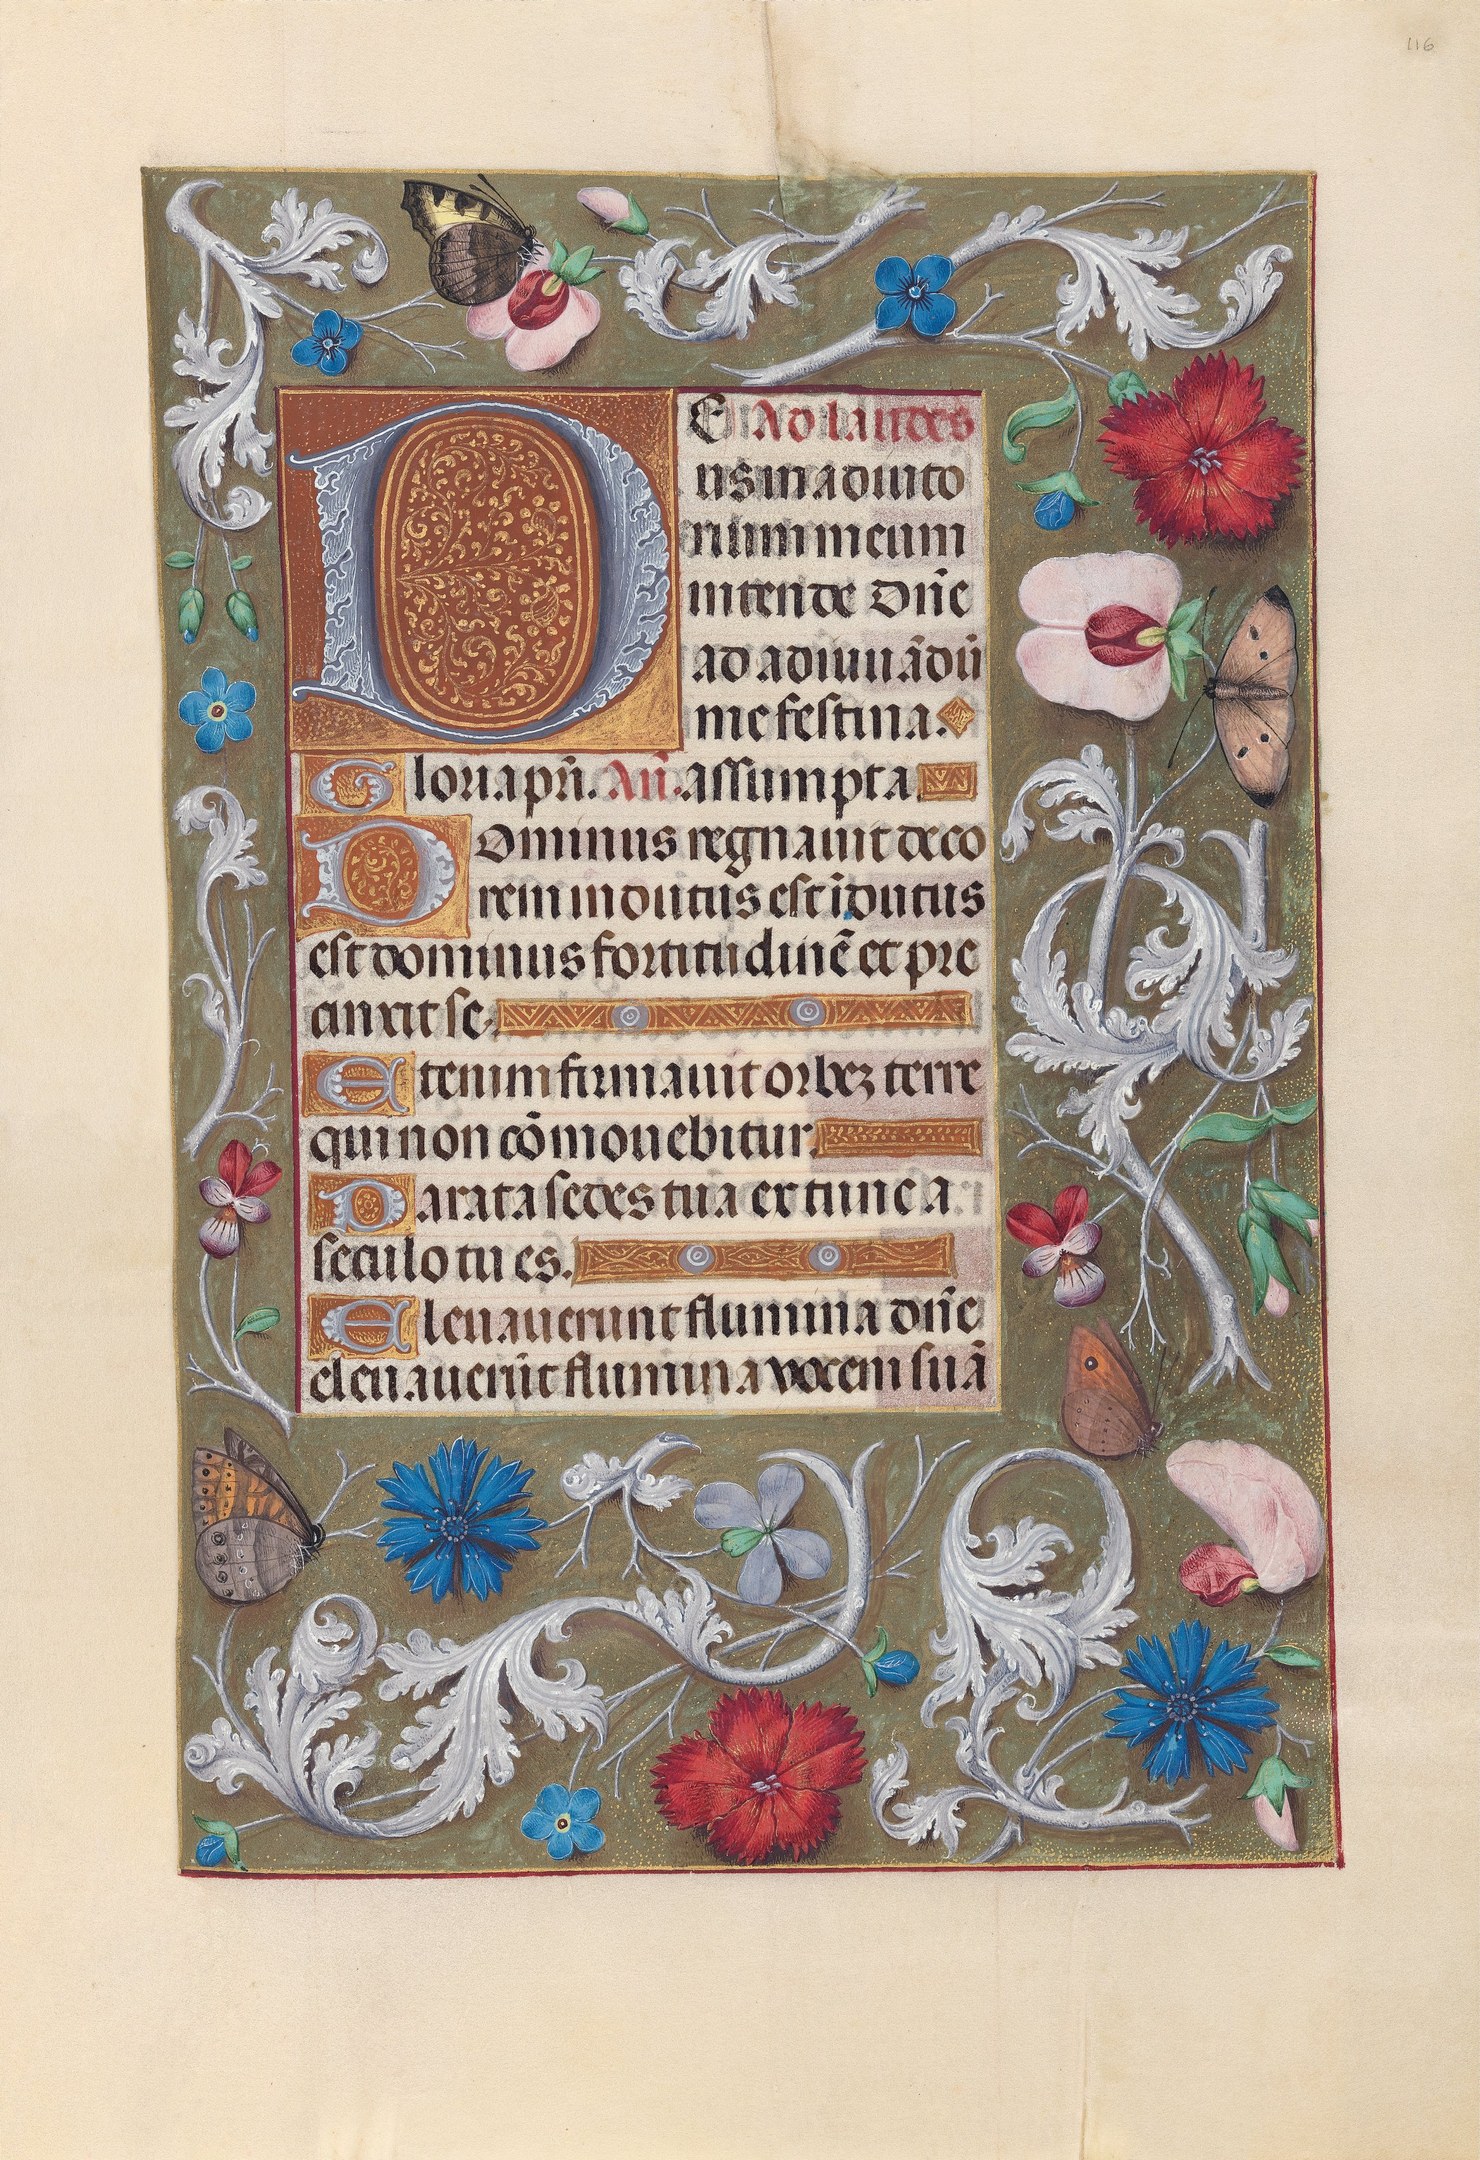 116
DE Ad laudes
us in adiuto
rium meum
intende Dn̄e
ad adiuuādū
me festina.
Gloria pr̄i. An̄. assumpta
Dominus regnauit deco
rem indutus est īdutus
est dominus fortitudinē et pre
cinxit se.
Etenim firmauit orbez terre
qui non cōmouebitur.
Parata sedes tua ex tunc a
seculo tu es.
Eleuauerunt flumina dn̄e
eleuauerūt flumina vocem suā